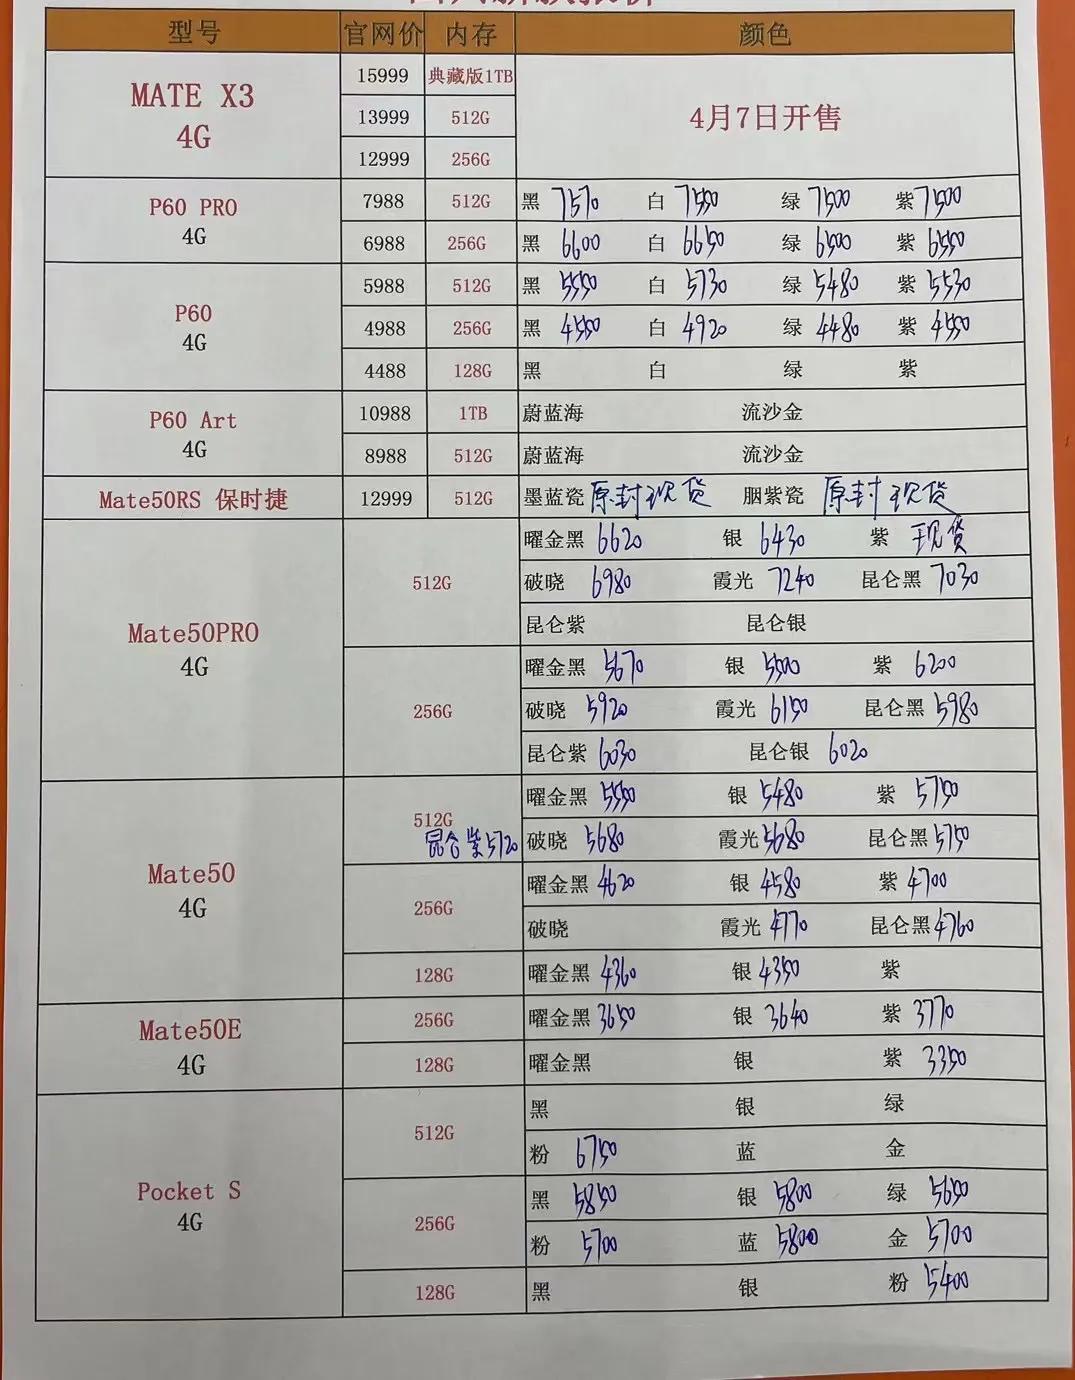 型号 官网价 内存 颜色
MATE X3 4G 15999 典藏版1TB 4月7日开售
13999 512G
12999 256G
P60 PRO 4G 7988 512G 黑 7570 白 7550 绿 7500 紫 7500
6988 256G 黑 6600 白 6650 绿 6500 紫 6550
P60 4G 5988 512G 黑 5550 白 5730 绿 5480 紫 5530
4988 256G 黑 4550 白 4920 绿 4480 紫 4550
4488 128G 黑 白 绿 紫
P60 Art 4G 10988 1TB 蔚蓝海 流沙金
8988 512G 蔚蓝海 流沙金
Mate50RS 保时捷 12999 512G 墨蓝瓷 原封现货 胭紫瓷 原封现货
Mate50PRO 4G 512G 曜金黑 6620 银 6430 紫 现货
破晓 6980 霞光 7240 昆仑黑 7030
昆仑紫 昆仑银
256G 曜金黑 5670 银 5500 紫 6200
破晓 5920 霞光 6150 昆仑黑 5980
昆仑紫 6030 昆仑银 6020
Mate50 4G 512G 曜金黑 5550 银 5480 紫 5750
昆仑紫5720 破晓 5680 霞光 5680 昆仑黑 5750
256G 曜金黑 4620 银 4580 紫 4700
破晓 霞光 4770 昆仑黑 4760
128G 曜金黑 4360 银 4350 紫
Mate50E 4G 256G 曜金黑 3650 银 3640 紫 3770
128G 曜金黑 银 紫 3350
Pocket S 4G 512G 黑 银 绿
粉 6750 蓝 金
256G 黑 5850 银 5800 绿 5650
粉 5700 蓝 5800 金 5700
128G 黑 银 粉 5400